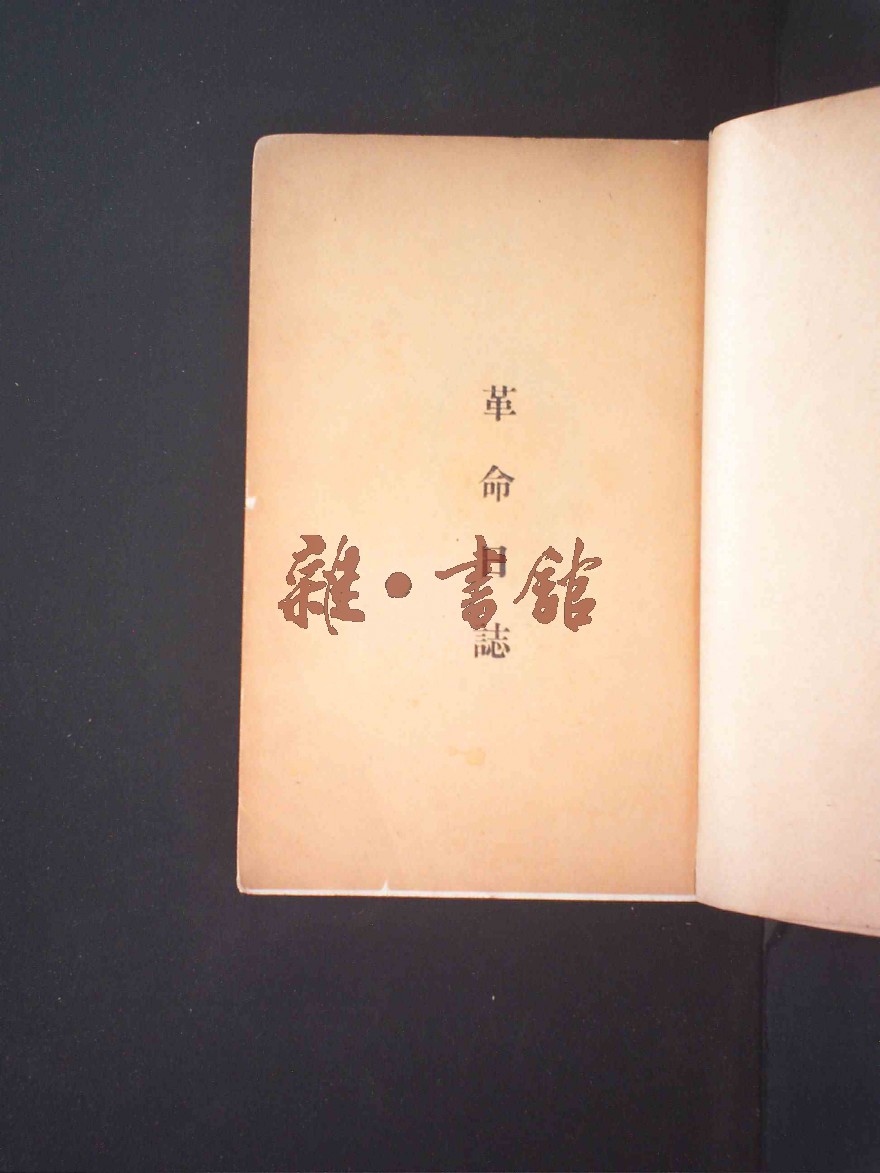 革命日誌
雜·書館